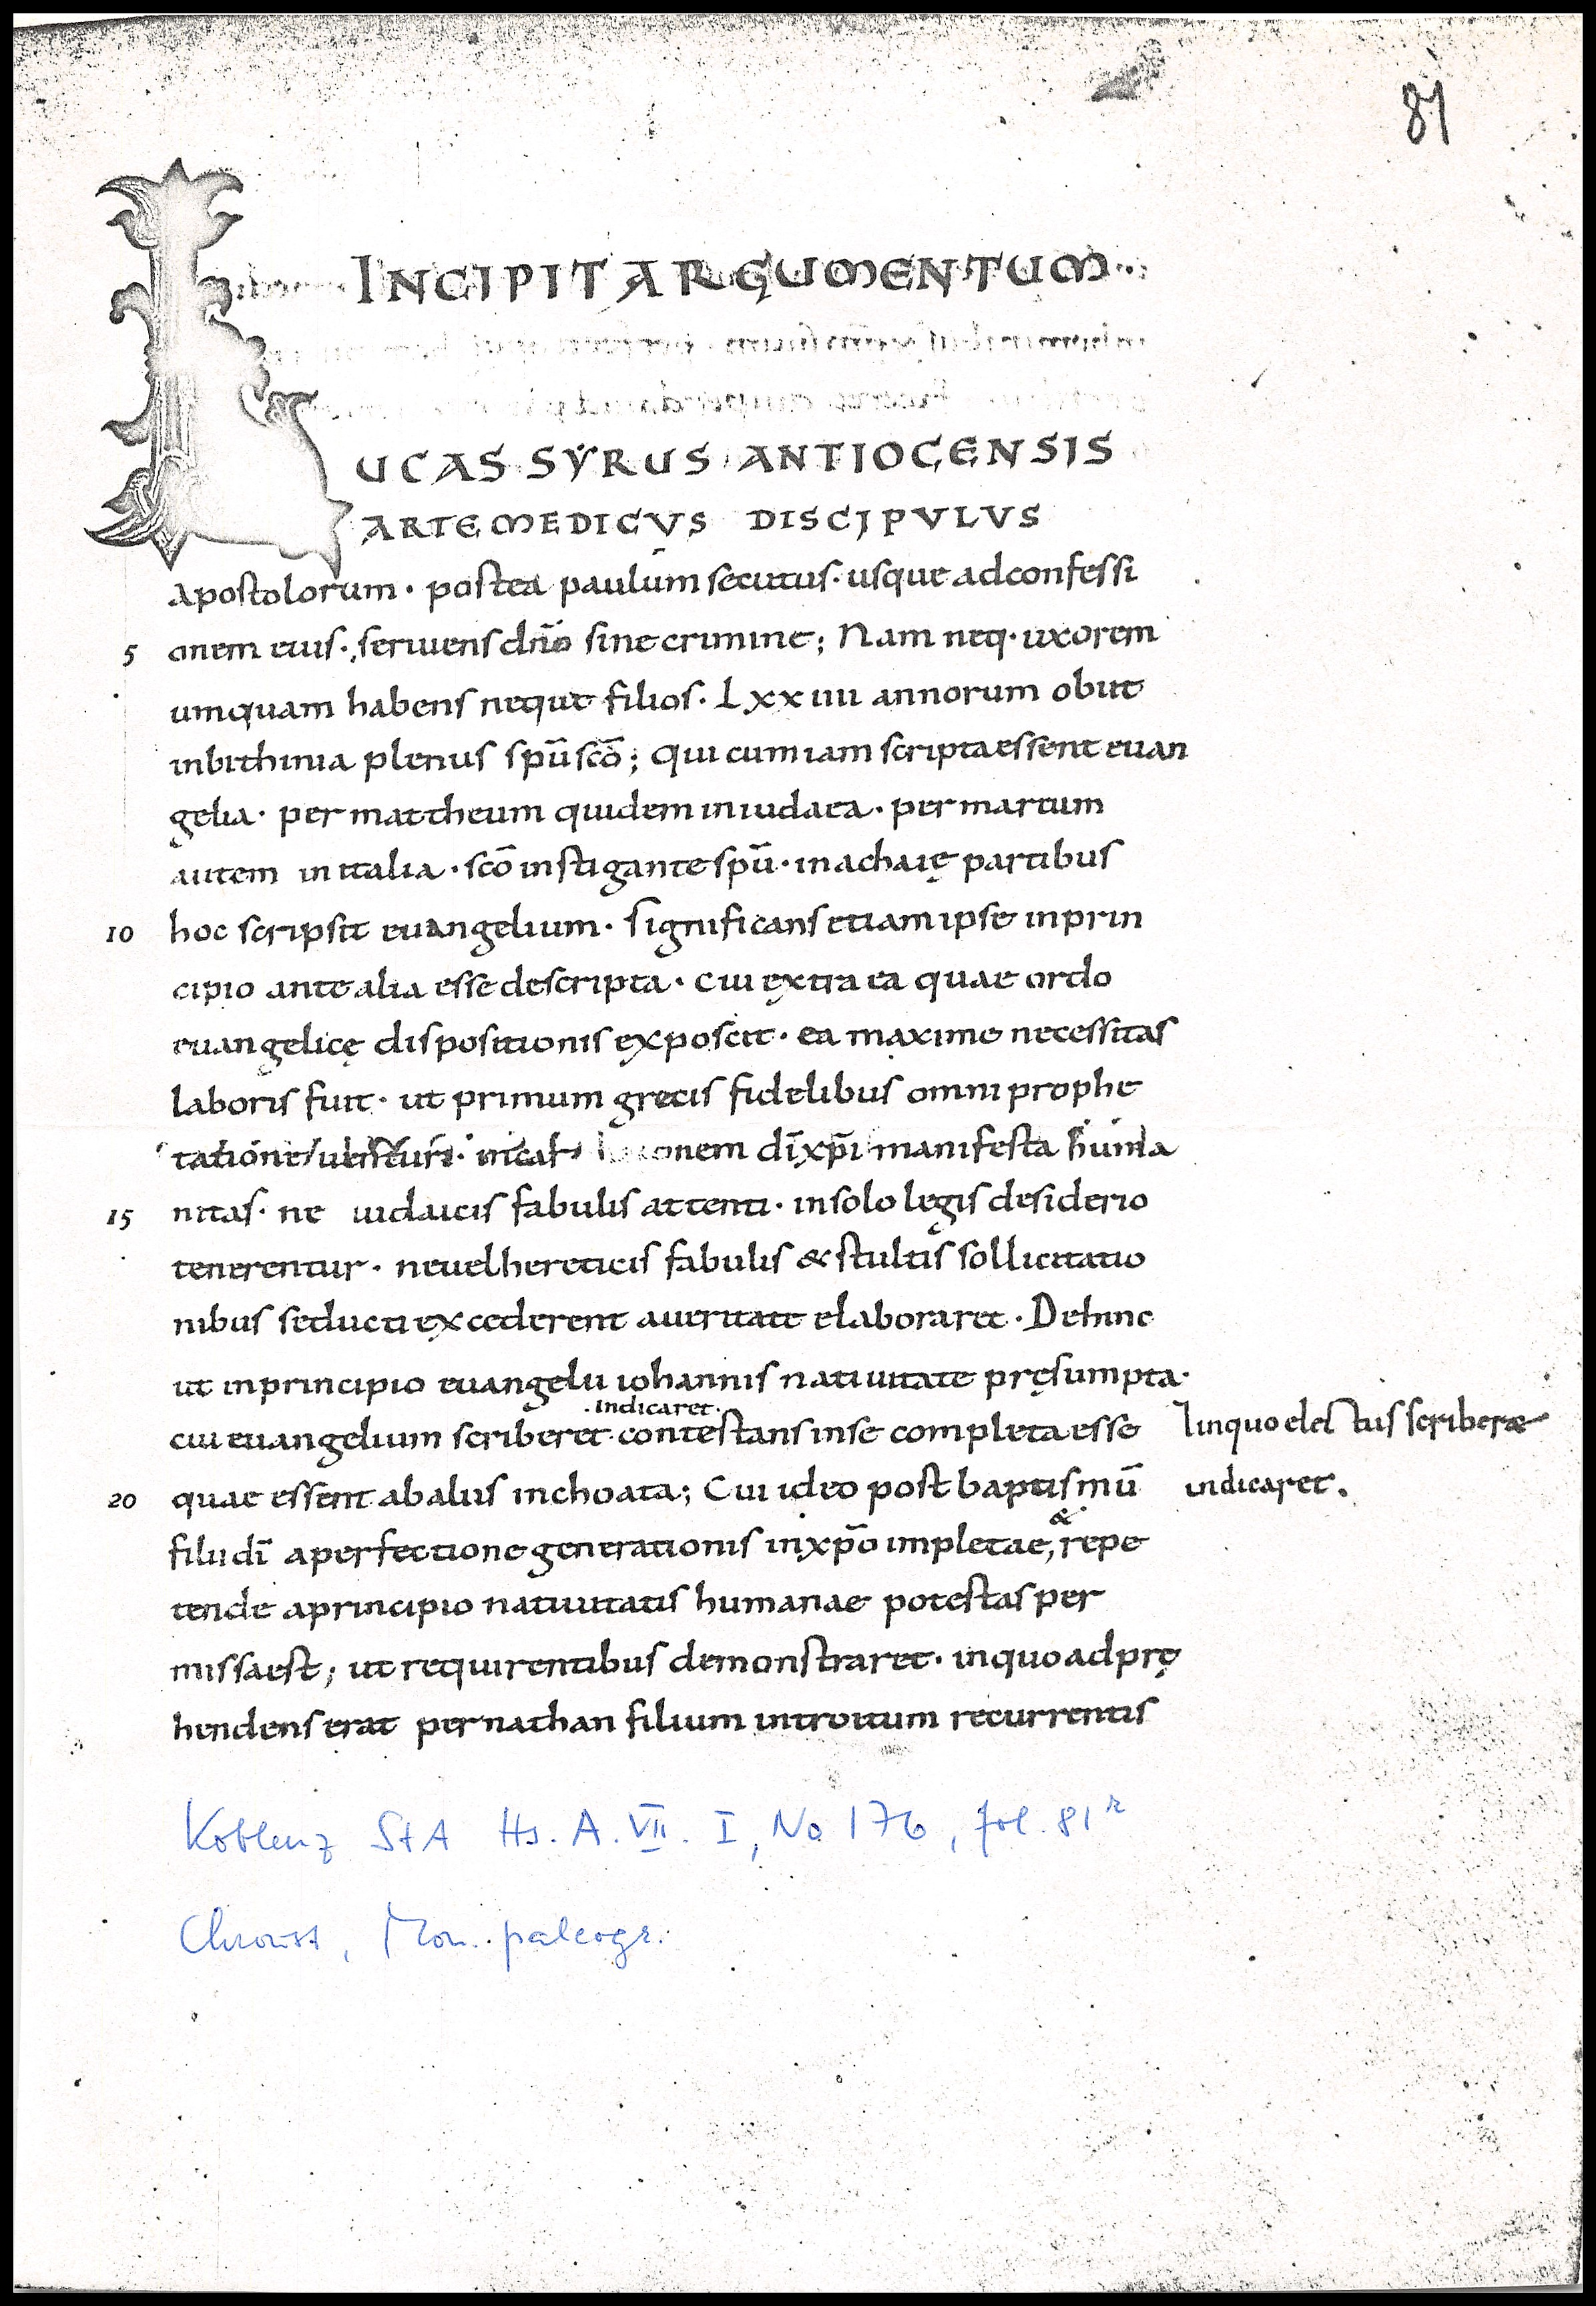 81
INCIPIT ARGUMENTUM·
LUCAS SYRUS ANTIOCENSIS
ARTE MEDICVS DISCIPVLVS
apostolorum · postea paulum secutus · usque adconfessi
5 onem eius · seruiens dn̄o sine crimine; Nam neq· uxorem
umquam habens neque filios · Lxxiiii annorum obiit
inbithinia plenus spū scō; Qui cum iam scripta essent euan
gelia · per mattheum quidem iniudaea · per marcum
autem in italia · scō instigante spū · in achaię partibus
10 hoc scripsit euangelium · significans etiam ipse inprin
cipio ante alia esse descripta · cui extra ea quae ordo
euangelicę dispositionis exposcit · ea maxime necessitas
laboris fuit · ut primum grecis fidelibus omni prophe
tatione uenturi · onem dī xp̄i manifesta huma
15 nitas · ne iudaicis fabulis attenti · insolo legis desiderio
tenerentur · neuel hereticis fabulis & stultis sollicitatio
nibus seducti excederent aueritate elaboraret · Dehinc
ut inprincipio euangelii iohannis natiuitate pręsumpta ·
·indicaret·
cui euangelium scriberet contestans inse completa esse
linquo electus scriberæ
20 quae essent abaliis inchoata; Cui ideo post baptismū
indicaret.
&
filii dī aperfectione generationis inxp̄o impletae, repe
tende aprincipio natiuitatis humanae potestas per
missa est; ut requirentibus demonstraret · inquo adprę
hendens erat per nathan filium introitum recurrentis
Koblenz StA Hs. A.VII. I, No 176, fol. 81r
Chroust, Mon. paleogr.